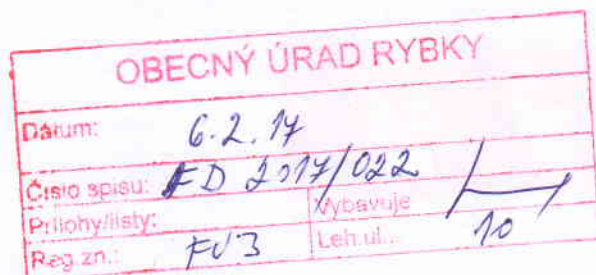 OBECNÝ ÚRAD RYBKY
Dátum: 6.2.17
Číslo spisu: FD 2017/022
Prílohy/listy: Vybavuje
Reg.zn.: FV3 Leh.ul.: 10